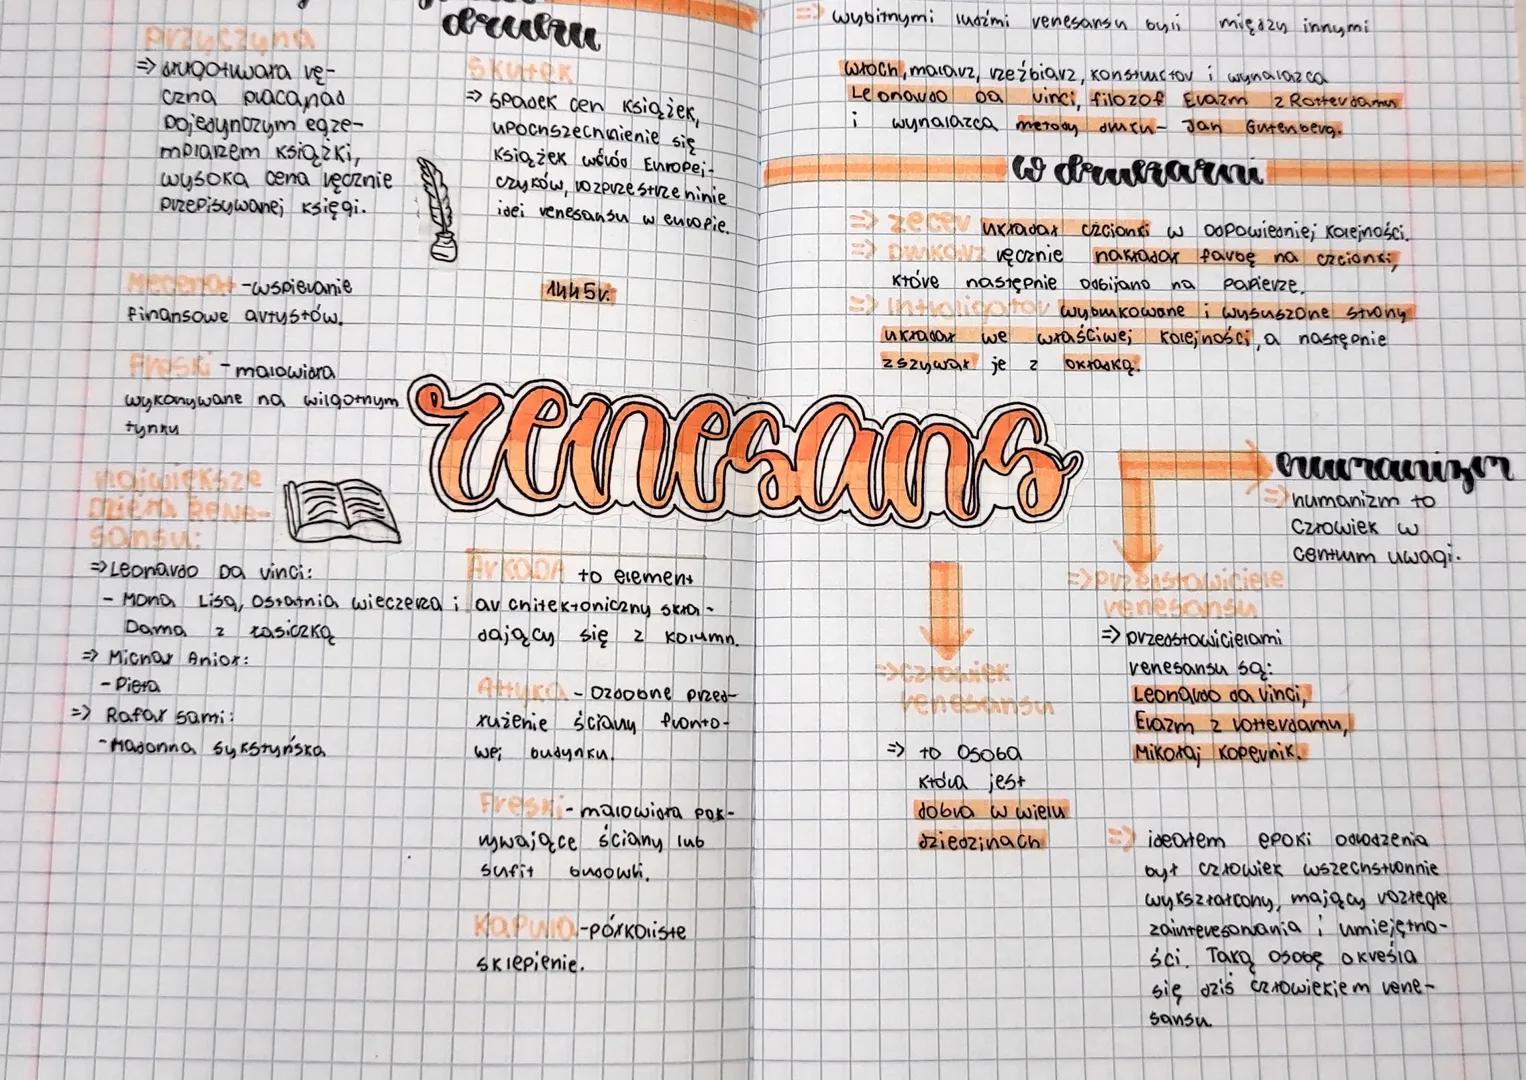 druku
przyczyna
=> długotwała rę-
czna praca nad
pojedynczym egze-
mplarzem książki,
wysoka cena ręcznie
przepisywanej księgi.
skutek
=> spadek cen książek,
upochszechnienie się
książek wśród Europej-
czyków, rozprzestrzeninie
idei renesansu w europie.
1445r.
Mecenat - wspieranie
finansowe artystów.
Freski - malowidła
wykonywane na wilgotnym
tynku
największe
dzieła rene-
sansu:
=> Leonardo Da vinci:
- Mona Lisa, Ostatnia wieczerza i
Dama z łasiczką
=> Michał Anioł:
- Pieta
=> Rafał sami:
- Madonna sykstyńska
renesans
ArKADA to element
architektoniczny skła-
dający się z kolumn.
Attyka - ozdobne przed-
łużenie ściany fronto-
wej budynku.
Freski - malowidła pok-
rywające ściany lub
sufit budowli.
Kopuła - półkoliste
sklepienie.
=> wybitnymi ludźmi renesansu byli między innymi
włoch, malarz, rzeźbiarz, konstructor i wynalazca
Leonardo Da vinci, filozof Erazm z Rotterdamu
i wynalazca metody druku - Jan Gutenberg.
w drukarni
=> zecer układał czcionki w odpowiedniej kolejności.
=> Drukarz ręcznie nakładał farbę na czcionki,
które następnie odbijano na papierze.
=> Introligator wydrukowane i wysuszone strony
układał we właściwej kolejności, a następnie
zszywał je z okładką.
humanizm
=> humanizm to
człowiek w
centrum uwagi.
=> przedstawiciele
renesansu
=> przedstawicielami
renesansu są:
Leonardo da vinci,
Erazm z rotterdamu,
Mikołaj Kopernik.
=> człowiek
renesansu
=> to osoba
która jest
dobra w wielu
dziedzinach
=> ideałem epoki odrodzenia
był człowiek wszechstronnie
wykształcony, mający rozległe
zainteresowania i umiejętno-
ści. Taką osobę określa
się dziś człowiekiem rene-
sansu.